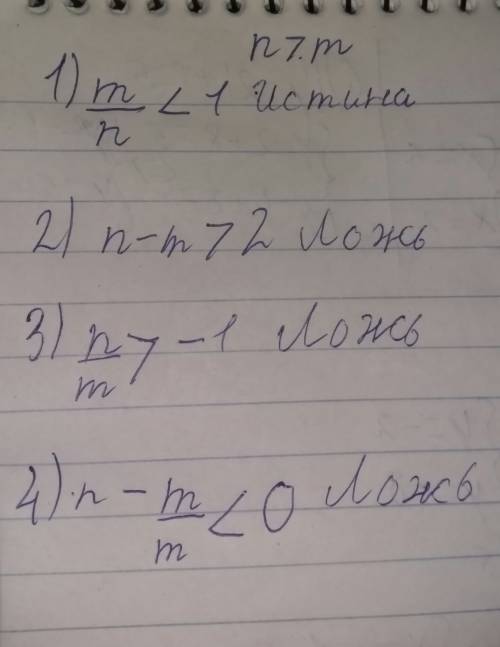 n > m
1) m/n < 1 Истина
2) n-m > 2 Ложь
3) n/m > -1 Ложь
4) n - m/m < 0 Ложь